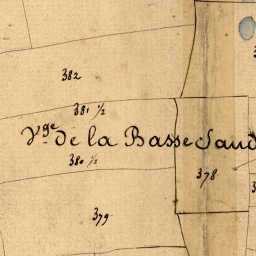 382
381 ½
Vge de la Basse Saud
380 ½
378
379